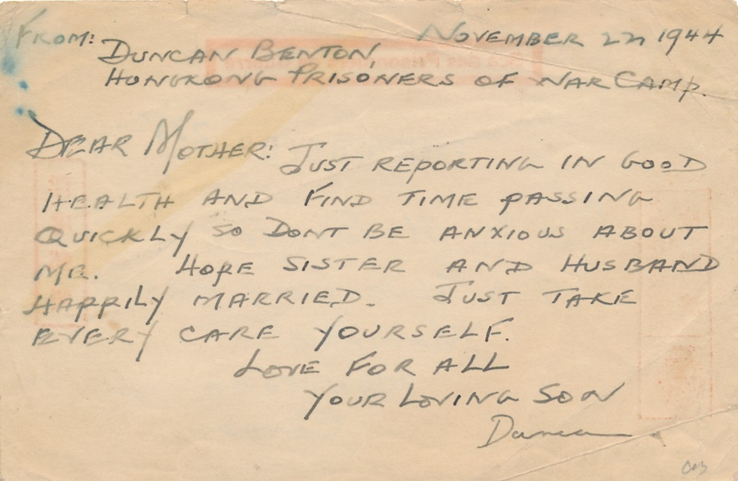 FROM: NOVEMBER 22 1944
DUNCAN BENTON,
HONGKONG PRISONERS OF WAR CAMP.
DEAR MOTHER: JUST REPORTING IN GOOD
HEALTH AND FIND TIME PASSING
QUICKLY SO DONT BE ANXIOUS ABOUT
ME. HOPE SISTER AND HUSBAND
HAPPILY MARRIED. JUST TAKE
EVERY CARE YOURSELF.
LOVE FOR ALL
YOUR LOVING SON
Duncan